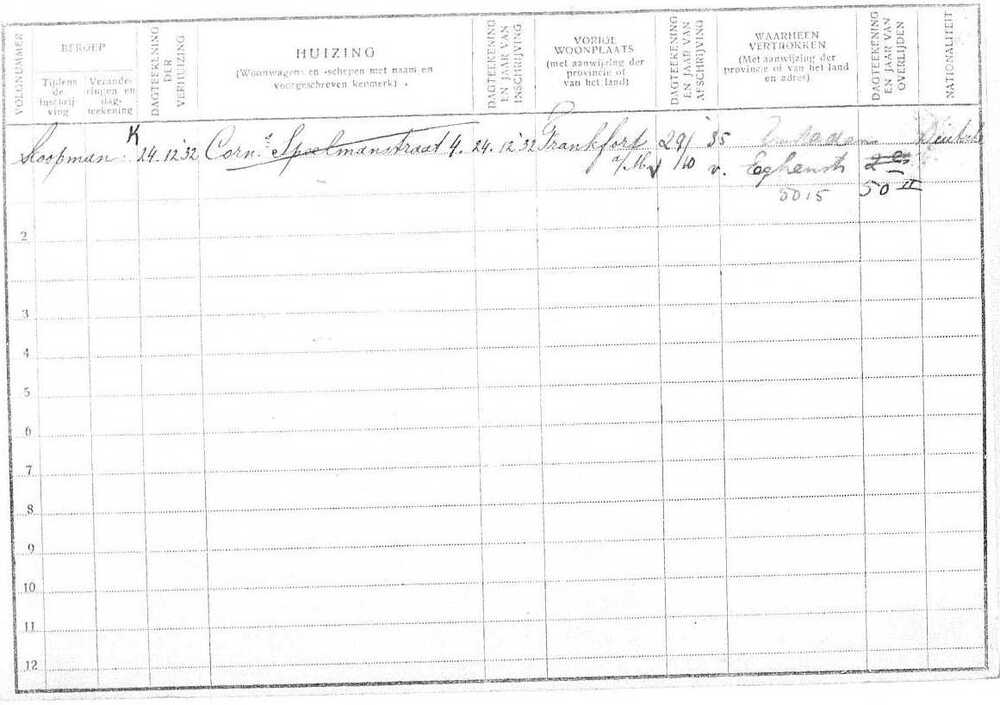 VOLGNUMMER
BEROEP
Tijdens de Inschrijving
Veranderingen en dagteekening
DAGTEEKENING DER VERHUIZING
HUIZING
(Woonwagens en -schepen met naam en voorgeschreven kenmerk)
DAGTEEKENING EN JAAR VAN INSCHRIJVING
VORIGE WOONPLAATS
(met aanwijzing der provincie of van het land)
DAGTEEKENING EN JAAR VAN AFSCHRIJVING
WAARHEEN VERTROKKEN
(Met aanwijzing der provincie of van het land en adres)
DAGTEEKENING EN JAAR VAN OVERLIJDEN
NATIONALITEIT
Koopman K 24.12 32 Corn.s Speelmanstraat 4. 24. 12 '32 Frankfort 29/ 35
a/M. 10 v. Eghenstr
5015 50 II
2
3
4
5
6
7
8
9
10
11
12